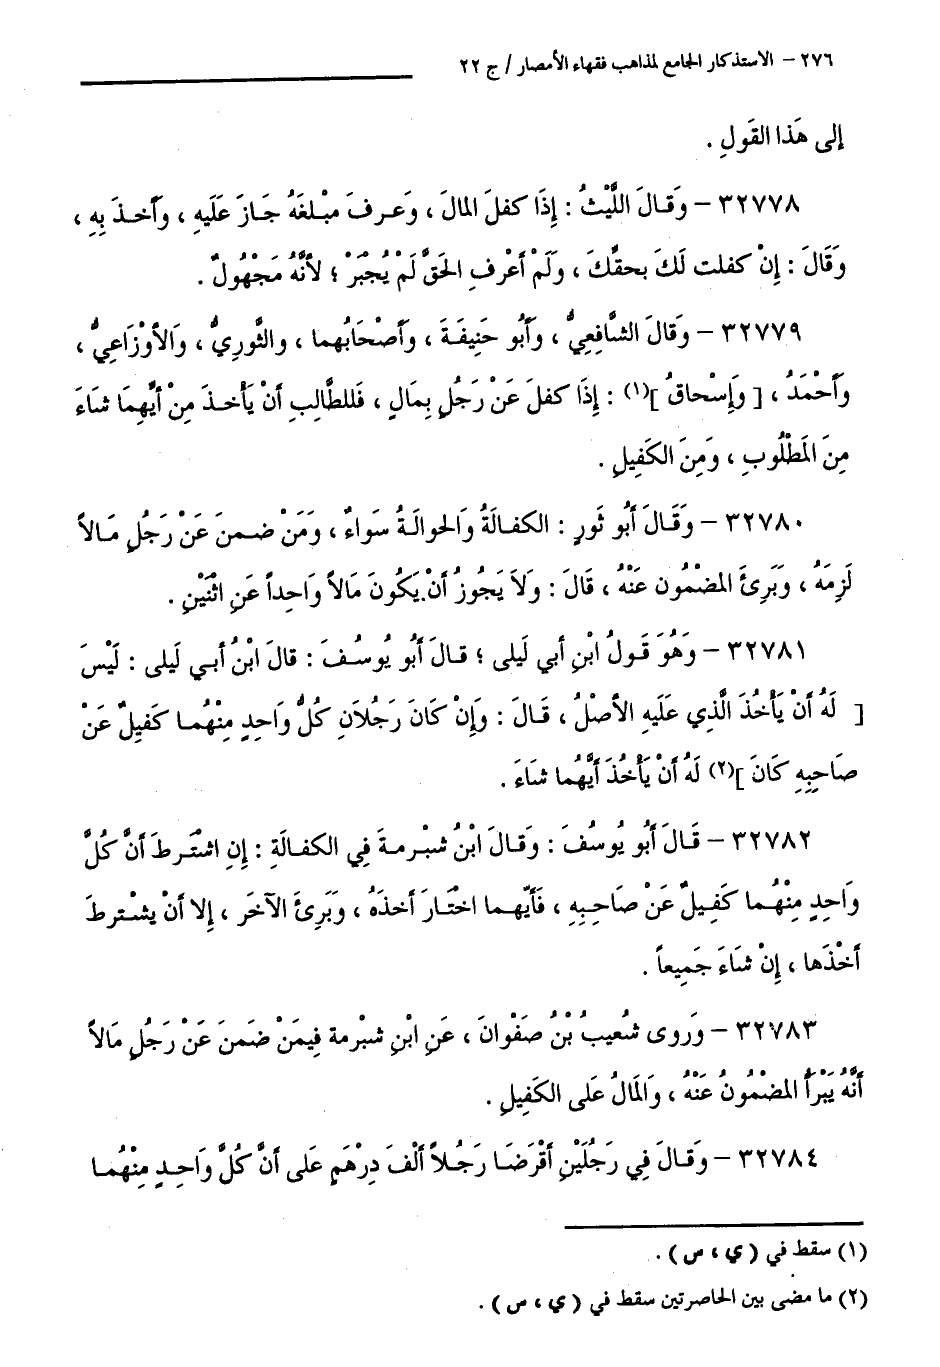 ٢٧٦ – الاستذكار الجامع لمذاهب فقهاء الأمصار / ج ٢٢
إلى هَذا القَولِ .
٣٢٧٧٨ – وَقَالَ اللَّيْثُ : إِذَا كفلَ المَال ، وَعرفَ مبْلغَهُ جَازَ عَلَيهِ ، وَأخذَ بِهِ ،
وَقَالَ : إِنْ كفلت لَكَ بحقِّكَ ، ولَمْ أعْرفِ الحَقَّ لَمْ يُجْبَرْ ؛ لأنَّهُ مَجْهُولٌ .
٣٢٧٧٩ – وَقَالَ الشَّافِعِيُّ ، وَأَبُو حَنِيفَةَ ، وَأصْحَابُهما ، والثَّوريُّ ، وَالأوْزَاعِيُّ ،
وَأَحْمَدُ ، [ وَإِسْحاقُ ](١) : إِذَا كفلَ عَنْ رَجُلٍ بِمَالٍ ، فَللطَّالِبِ أنْ يَأخذَ مِنْ أيِّهِمَا شَاءَ
مِنَ المَطْلُوبِ ، وَمِنَ الكَفِيلِ .
٣٢٧٨٠ – وَقَالَ أَبُو ثَورٍ : الكفالَةُ وَالحوالَةُ سَواءٌ ، وَمَنْ ضمنَ عَنْ رَجُلٍ مَالاً
لَزِمَهُ ، وَبَرِئَ المضْمُون عَنْهُ ، قَالَ : وَلاَ يَجُوزُ أنْ يَكُونَ مَالاً وَاحِداً عَنِ اثْنَيْنِ .
٣٢٧٨١ – وَهُوَ قَولُ ابْنِ أبي لَيلى ؛ قالَ أبُو يُوسُفَ : قالَ ابْنُ أبي لَيلى : لَيْسَ
[ لَهُ أنْ يَأْخُذَ الَّذِي عَلَيهِ الأصْلُ ، قَالَ : وَإِنْ كَانَ رَجُلاَنِ كُلُّ وَاحِدٍ مِنْهُما كَفِيلٌ عَنْ
صَاحِبِهِ كَانَ ](٢) لَهُ أنْ يَأخُذَ أيَّهُما شَاءَ .
٣٢٧٨٢ – قَالَ أبُو يُوسُفَ : وَقالَ ابْنُ شبْرمةَ فِي الكفالَةِ : إِنِ اشْتَرطَ أنَّ كُلَّ
وَاحِدٍ مِنْهُما كَفِيلٌ عَنْ صَاحِبِهِ ، فَأيّهما اخْتَارَ أخذَهُ ، وبَرِئَ الآخَر ، إِلا أنْ يشْترطَ
أخْذَها ، إِنْ شَاءَ جَمِيعاً .
٣٢٧٨٣ – وَروى شُعيبُ بْنُ صَفْوانَ ، عَنِ ابْنِ شبْرمة فِيمَنْ ضَمنَ عَنْ رَجُلٍ مَالاً
أنَّهُ يَبْرأُ المضْمُونُ عَنْهُ ، وَالمَالُ عَلى الكَفِيلِ .
٣٢٧٨٤ – وَقَالَ فِي رَجُلَيْنِ أقْرَضَا رَجُلاً ألْفَ دِرْهَمٍ عَلى أنَّ كُلَّ وَاحِدٍ مِنْهُمَا
(١) سقط في ( ي ، س ) .
(٢) ما مضى بين الحاصرتين سقط في ( ي ، س ) .